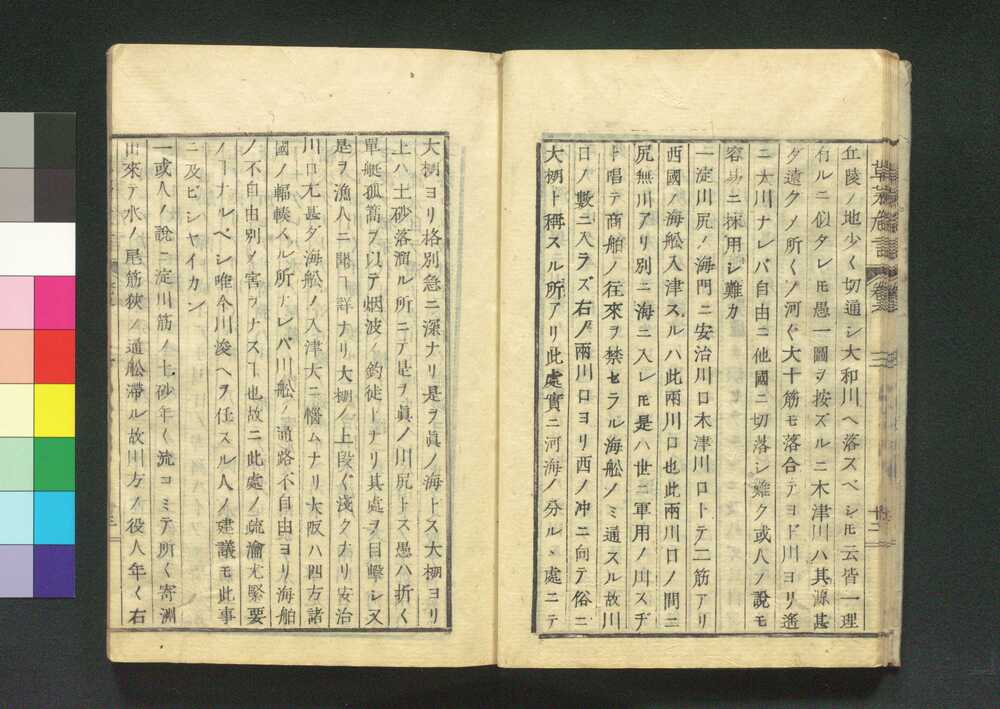 丘陵ノ地少ク切通シ大和川ヘ落スベシ𪜈云皆一理
有ルニ似タレ𪜈愚一圖ヲ按ズルニ木津川ハ其源甚
ダ遠クノ所〱ノ河〱大十筋モ落合テヨド川ヨリ遙
ニ大川ナレバ自由ニ他國ニ切落シ難ク或人ノ說モ
容易ニ採用シ難カ
一淀川尻ノ海門ニ安治川口木津川口トテ二筋アリ
西國ノ海舩入津スルハ此兩川口也此兩川口ノ間ニ
尻無川アリ別ニ海ニ入レ𪜈是ハ世ニ軍用ノ川スヂ
ト唱テ商舶ノ往來ヲ禁セラル海舩ノミ通スル故川
口ノ數ニ入ラズ右ノ兩川口ヨリ西ノ冲ニ向テ俗ニ
大棚ト稱スル所アリ此處實ニ河海ノ分ルヽ處ニテ
大棚ヨリ格別急ニ深ナリ是ヲ眞ノ海トス大棚ヨリ
上ハ土砂落溜ル所ニテ是ヲ眞ノ川尻トス愚ハ折〱
單艇孤蓑ヲ以テ烟波ノ釣徒トナリ其處ヲ目擊シ又
是ヲ漁人ニ聞ヿ詳ナリ大棚ノ上段〱淺クナリ安治
川口尤甚ダ海舩ノ入津大ニ惱ムナリ大阪ハ四方諸
國ノ輻輳スル所ナレバ川舩ノ通路不自由ヨリ海舶
ノ不自由別ノ害ヲナスヿ也故ニ此處ノ疏瀹尤緊要
ノヿナルベシ唯今川浚ヘヲ任スル人ノ建議モ此事
ニ及ビシヤイカン
一或人ノ說ニ淀川筋ノ土砂年〱流コミテ所〱寄洲
出來テ水ノ尾筋狹ク通舩滯ル故川方ノ役人年〱右